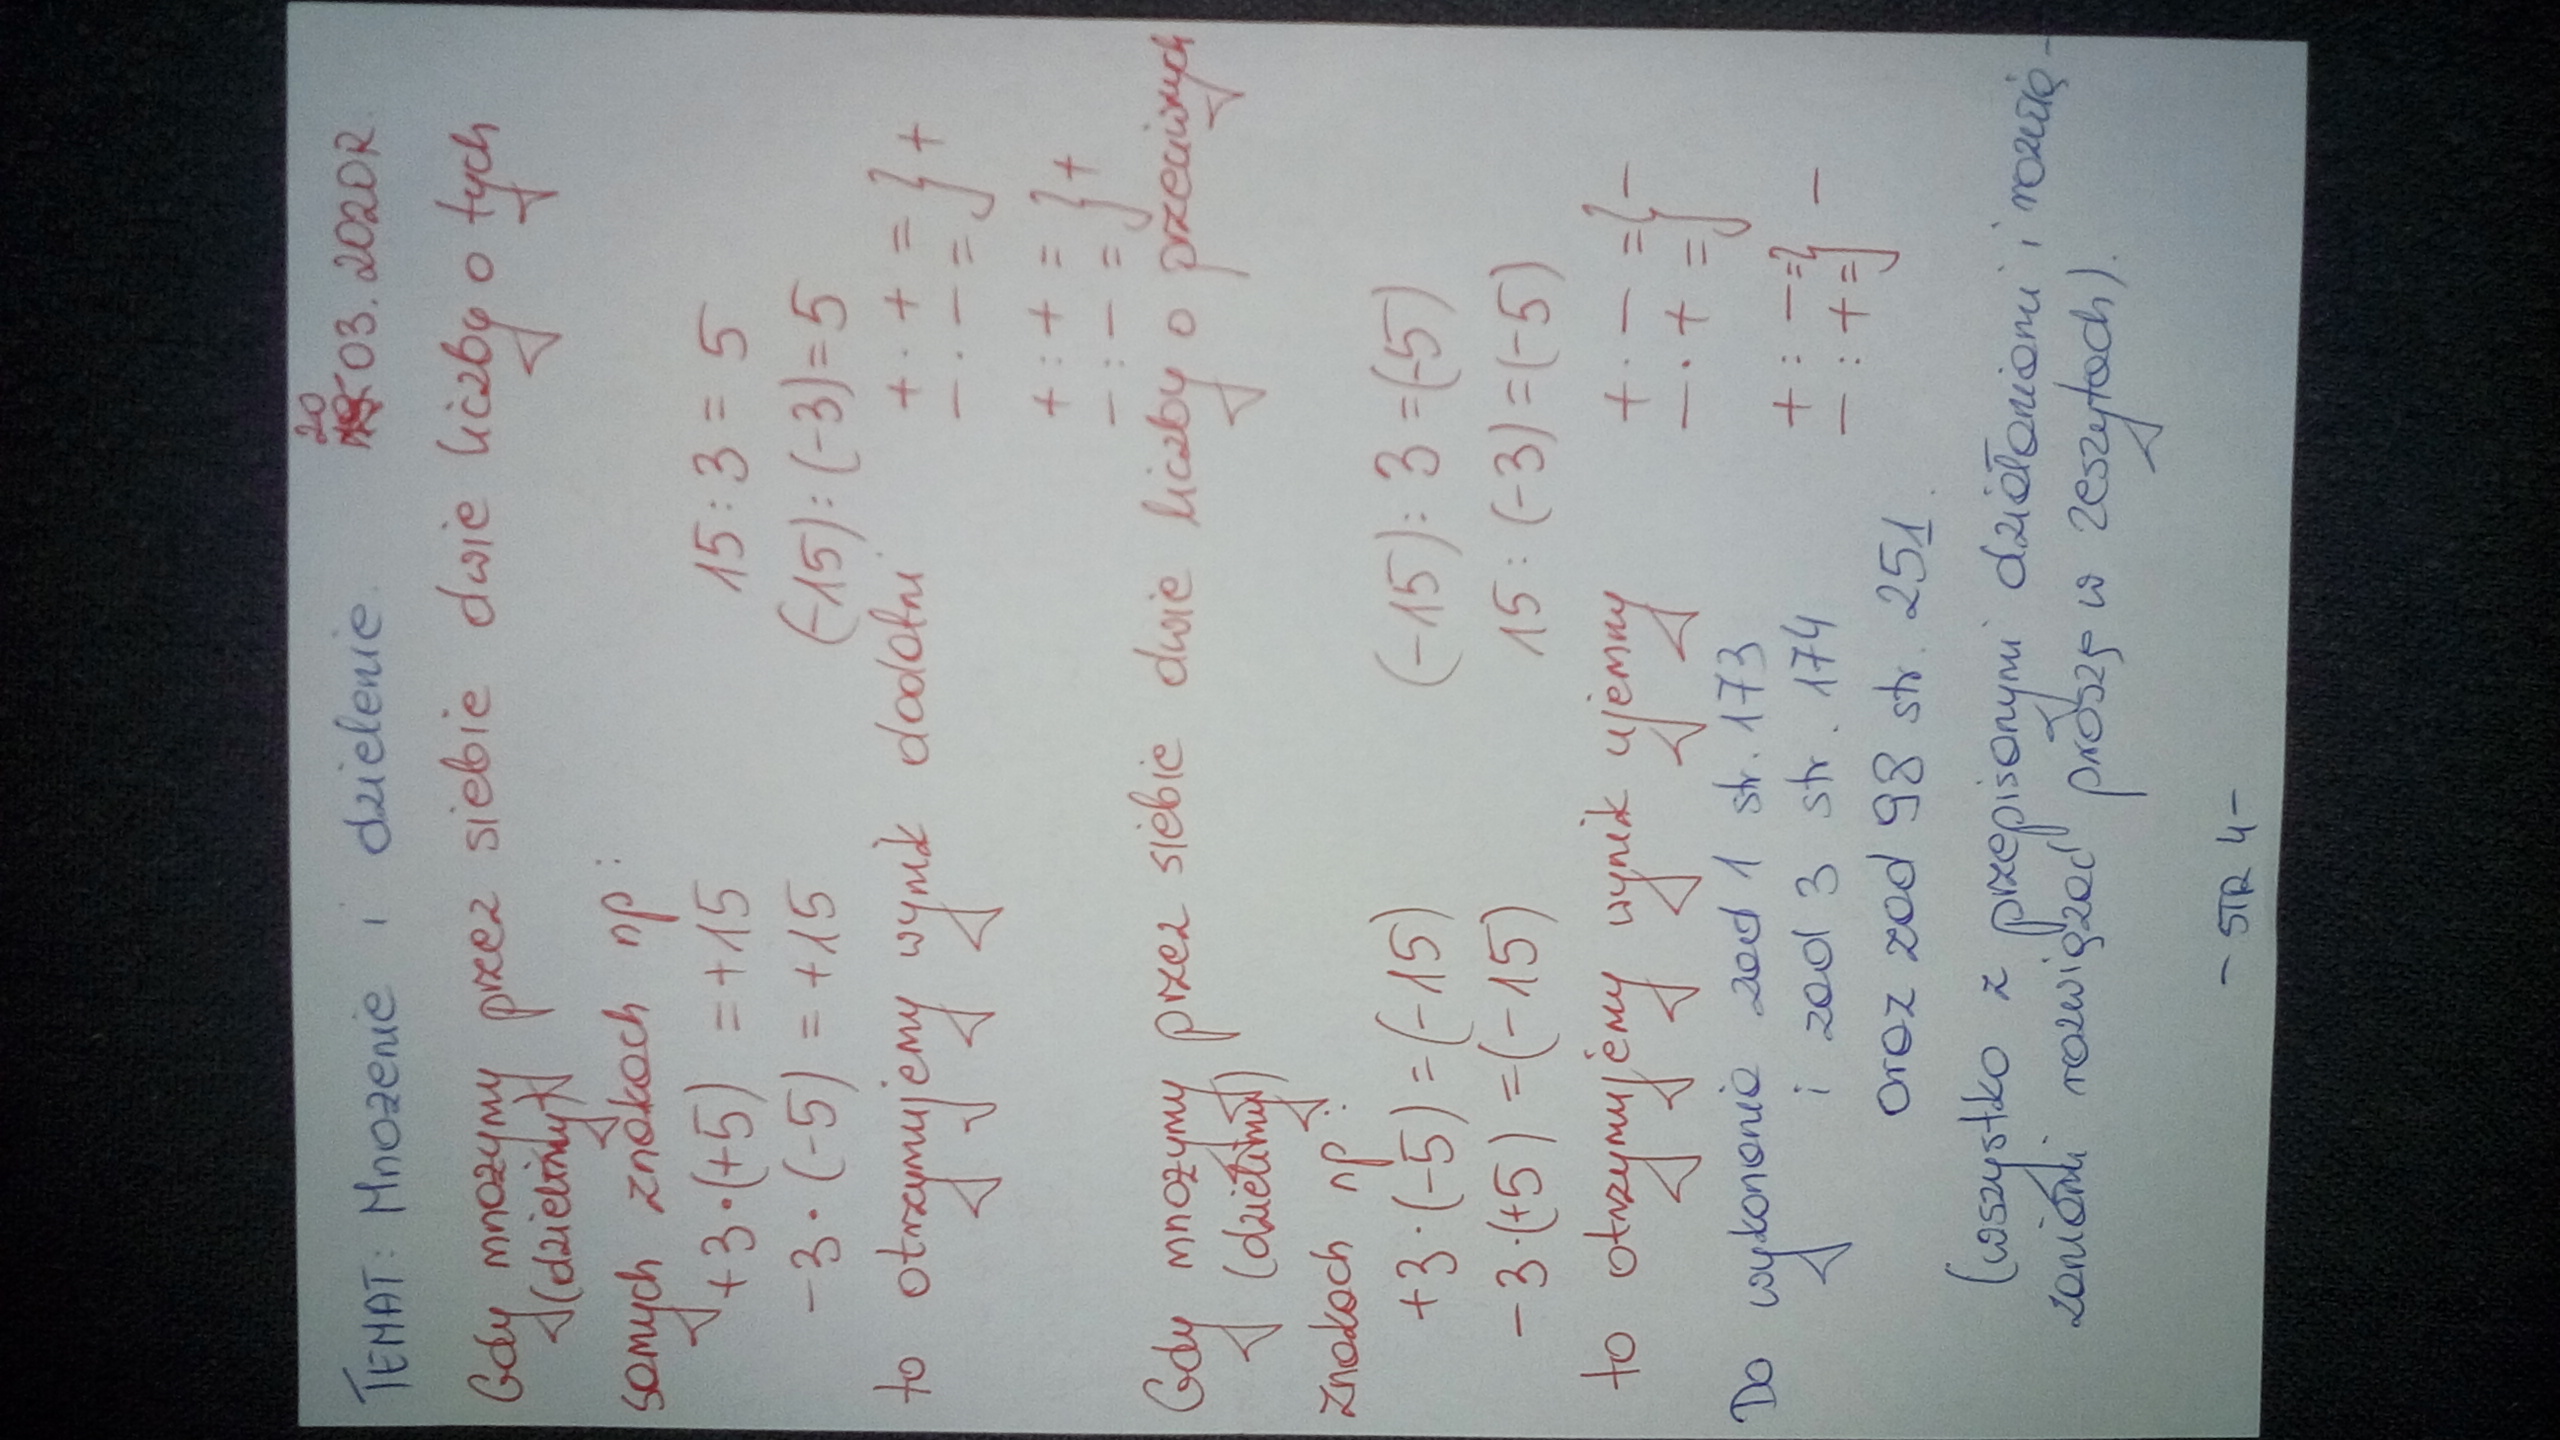 20
03.2020R.
TEMAT: Mnożenie i dzielenie.
Gdy mnożymy przez siebie dwie liczby o tych
(dzielimy)
samych znakach np:
+3·(+5) = +15 15:3 = 5
-3·(-5) = +15 (-15):(-3)=5
to otrzymujemy wynik dodatni.
+ · + = } +
- · - =
+ : + = } +
- : - =
Gdy mnożymy przez siebie dwie liczby o przeciwnych
(dzielimy)
znakach np:
+3·(-5) =(-15) (-15):3=(-5)
-3·(+5) =(-15) 15:(-3)=(-5)
to otrzymujemy wynik ujemny
+ · - = } -
- · + =
+ : - = } -
- : + =
Do wykonania zad 1 str. 173
i zad 3 str. 174
oraz zad 98 str. 251.
(wszystko z przepisanymi działaniami i rozwią-
zaniami rozwiązać proszę w zeszytach).
- STR 4-